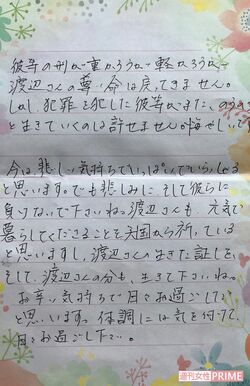 彼等の刑が重かろうが軽かろうが
渡辺さんの尊い命は戻ってきません。
しかし犯罪を犯した彼等がまた、のうのう
と生きていくのは許せませんが悔やしいで
今は悲しい気持ちでいっぱいでいらっしゃる
と思います。でも悲しみに、そして彼らに
負けないで下さいね。渡辺さんも、元気で
暮らしてくださることを天国から祈っている
と思いますし、渡辺さんの生きた証しを、
そして、渡辺さんの分も、生きて下さいね。
お辛い気持ちで日々お過ごしでし
と思いますが、体調には気を付けて、
日々お過ごし下さい。
週刊女性PRIME